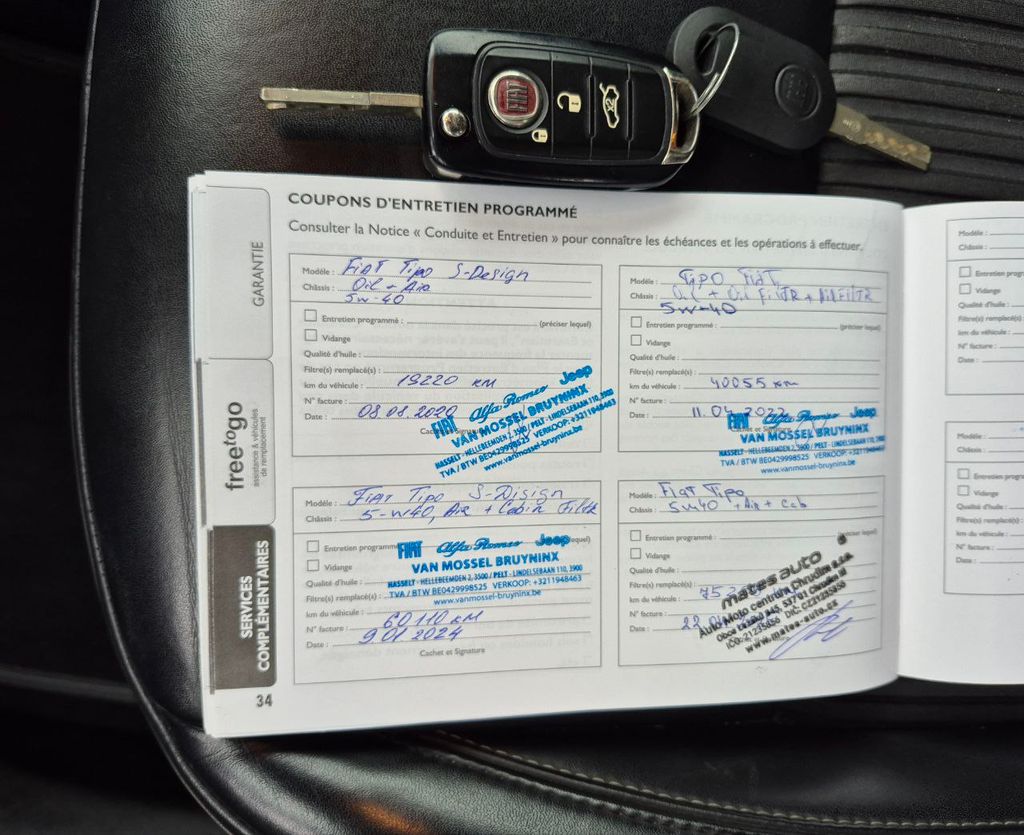 FIAT
x2
COUPONS D'ENTRETIEN PROGRAMMÉ
Consulter la Notice « Conduite et Entretien » pour connaître les échéances et les opérations à effectuer.
GARANTIE
freetogo
assistance & véhicules
de remplacement
SERVICES
COMPLÉMENTAIRES
34
Modèle : Fiat Tipo S-Design
Châssis : Oil + Air
5w-40
Entretien programmé : (préciser lequel)
Vidange
Qualité d'huile :
Filtre(s) remplacé(s) :
km du véhicule : 19220 km
N° facture :
Date : 08.08.2020
Cachet et Signature
FIAT Alfa Romeo Jeep
VAN MOSSEL BRUYNINX
HASSELT - HELLEBEEMDEN 2, 3500 / PELT - LINDELSEBAAN 110, 3900
TVA / BTW BE0429998525 VERKOOP: +3211948463
www.vanmossel-bruyninx.be
Modèle : TIPO FIAT
Châssis : Oil + Oil FILTR + AIRFILTR
5w-40
Entretien programmé : (préciser lequel)
Vidange
Qualité d'huile :
Filtre(s) remplacé(s) :
km du véhicule : 40055 km
N° facture :
Date : 11.04.2022
FIAT Alfa Romeo Jeep
VAN MOSSEL BRUYNINX
HASSELT - HELLEBEEMDEN 2, 3500 / PELT - LINDELSEBAAN 110, 3900
TVA / BTW BE0429998525 VERKOOP: +3211948463
www.vanmossel-bruyninx.be
Modèle : Fiat Tipo S-Disign
Châssis : 5-w40, Air + Cabin Filtr
Entretien programmé lequel)
Vidange
Qualité d'huile :
Filtre(s) remplacé(s) :
km du véhicule :
N° facture : 60110 km
Date : 9.01.2024
Cachet et Signature
FIAT Alfa Romeo Jeep
VAN MOSSEL BRUYNINX
HASSELT - HELLEBEEMDEN 2, 3500 / PELT - LINDELSEBAAN 110, 3900
TVA / BTW BE0429998525 VERKOOP: +3211948463
www.vanmossel-bruyninx.be
Modèle : Fiat Tipo
Châssis : 5w40 + Air + Cab
Entretien programmé : (préciser lequel)
Vidange
Qualité d'huile :
Filtre(s) remplacé(s) :
km du véhicule :
N° facture :
Date : 22.
mates auto
Auto Moto centrum Chrudim
www.mates-auto.cz
Modèle :
Châssis :
Entretien progr
Vidange
Qualité d'huile :
Filtre(s) remplacé(s) :
km du véhicule :
N° facture :
Date :
Modèle :
Châssis :
Entretien progra
Vidange
Qualité d'huile :
Filtre(s) remplacé(s)
km du véhicule :
N° facture :
Date :